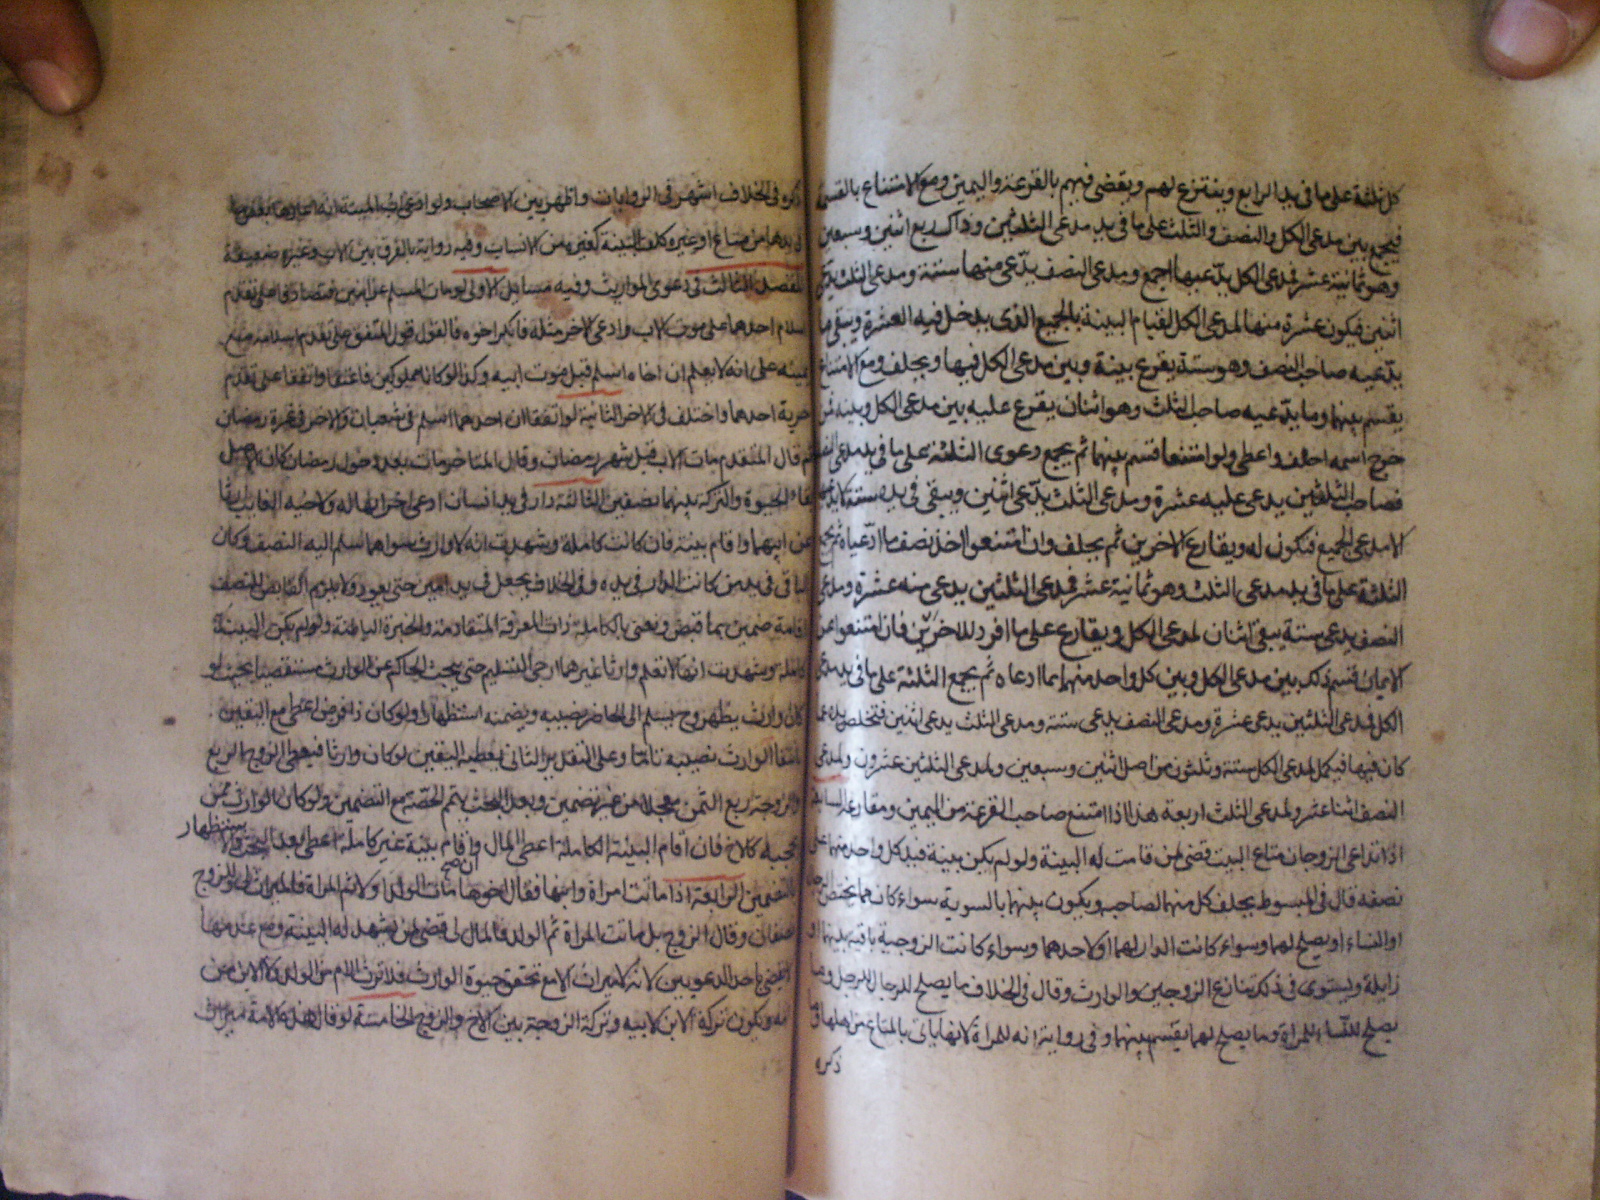 كل ثلثة على ما فى يد الرابع وينتزع لهم ويقضى فيهم بالقرعة واليمين ومع الامتناع بالقسمة
فيجمع بين مدعى الكل والنصف والثلث على ما فى يد مدعى الثلثين وذلك ربع اثنين وسبعين
وهو ثمانية عشر فمدعى الكل يدّعيها اجمع ومدعى النصف يدّعى منها ستة ومدعى الثلث يدّعى
اثنين فيكون عشرة منها لمدعى الكل لقيام البينة بالجميع الذى يدخل فيه العشرة ويبقى ما
يدّعيه صاحب النصف وهو ستة يقرع بينه وبين مدعى الكل فيها ويحلف ومع الامتناع
يقسم بينهما وما يدّعيه صاحب الثلث وهو اثنان يقرع عليه بين مدعى الكل وبينه فمن
خرج اسمه احلف واعطى ولو امتنعا قسم بينهما ثم يجمع دعوى الثلثة على ما فى يد مدعى النصف
فصاحب الثلثين يدعى عليه عشرة ومدعى الثلث يدّعى اثنين ويبقى فى يده ستة لا يدعيها
الا مدعى الجميع فيكون له ويقارع الاخرين ثم يحلف وان امتنعوا اخذ نصف ما ادّعياه ثم يجمع
الثلثة على ما فى يد مدعى الثلث وهو ثمانية عشر فمدعى الثلثين يدعى منه عشرة ومدعى
النصف يدعى ستة يبقى اثنان لمدعى الكل ويقارع على ما افرد للاخرين فان امتنعوا عن
الايمان قسم ذلك بين مدعى الكل وبين كل واحد منهما بما ادعاه ثم يجمع الثلثة على ما فى يد مدعى
الكل فمدعى الثلثين يدعى عشرة ومدعى النصف يدعى ستة ومدعى الثلث يدعى اثنين فتخلص يده عما
كان فيها فيكمل لمدعى الكل ستة وثلثون من اصل اثنين وسبعين ولمدعى الثلثين عشرون ولمدعى
النصف اثنا عشر ولمدعى الثلث اربعة هذا اذا امتنع صاحب القرعة من اليمين ومقارعه السابعة
اذا تداعى الزوجان متاع البيت قضى لمن قامت له البينة ولو لم يكن بينة فيد كل واحد منهما على
نصفه قال فى المبسوط يحلف كل منهما لصاحبه ويكون بينهما بالسوية سواء كان مما يختص الرجال
او النساء او يصلح لهما وسواء كانت الدار لهما او لاحدهما وسواء كانت الزوجية باقية بينهما او
زايلة ويستوى فى ذلك تنازع الزوجين والوارث وقال فى الخلاف ما يصلح للرجال للرجل وما
يصلح للنساء للمراة وما يصلح لهما يقسم بينهما وفى رواية انه للمراة لانها تاتى بالمتاع من اهلها وما
ذكره
ذكره فى الخلاف اشهر فى الروايات واظهر بين الاصحاب ولو ادعى ابو الميتة انه اعارها بعض ما
فى يدها من متاع او غيره كلف البينة كغيره من الانساب وفيه رواية بالفرق بين الاب وغيره ضعيفة
المقصد الثالث فى دعوى المواريث وفيه مسايل الاولى لو مات المسلم عن ابنين فتصادقا على تقدم
اسلام احدهما على موت الاب وادعى الاخر مثله فانكر اخوه فالقول قول المتفق على تقدم اسلامه مع
يمينه على انه لا يعلم ان اخاه اسلم قبل موت ابيه وكذا لو كانا مملوكين فاعتقا واتفقا على تقدم
حرية احدهما واختلف فى الاخر الثانية لو اتفقا ان احدهما اسلم فى شعبان والاخر فى غرة رمضان
ثم قال المتقدم مات الاب قبل شهر رمضان وقال المتاخر مات بعد دخول رمضان كان الاصل
بقاء الحيوة والتركة بينهما نصفين الثالثة دار فى يد انسان ادعى اخر انها له ولاخيه الغايب ارثا
عن ابيهما واقام بينة فان كانت كاملة وشهدت انه لا وارث سواهما سلم اليه النصف وكان
الباقى فى يد من كانت الدار فى يده وفى الخلاف يجعل فى يد امين حتى يعود ولا يلزم القابض للنصف
اقامة ضمين بما قبض ونعنى بالكاملة ذات المعرفة المتقادمة والخبرة الباطنة ولو لم يكن البينة
كاملة وشهدت انها لا تعلم وارثا غيرهما ارجئ التسليم حتى يبحث الحاكم عن الوارث مستقصيا بحيث لو
كان وارث لظهر وح يسلم الى الحاضر نصيبه ويضمنه استظهارا ولو كان ذا فرض اعطى مع اليقين
بانتفاء الوارث نصيبه تاما وعلى التقدير الثانى يعطيه اليقين ان لو كان وارثا فيعطى الزوج الربع
والزوجة ربع الثمن معجلا من غير تضمين وبعد البحث يتم الحصة مع التضمين ولو كان الوارث ممن
يحجبه كالاخ فان اقام البينة الكاملة اعطى المال وان اقام بينة غير كاملة اعطى بعد البحث والاستظهار
بالتضمين الرابعة اذا ماتت امراة وابنها فقال اخوها مات الولد اولا ثم المراة فالميراث لى وللزوج
نصفان وقال الزوج بل ماتت المراة ثم الولد فالمال لى قضى لمن تشهد له البينة ومع عدمها
لا يقضى باحد الدعويين لانه لا ميراث الا مع تحقق حيوة الوارث فلا ترث الام من الولد ولا الابن من
امه ويكون تركة الابن لابيه وتركة الزوجة بين الاخ والزوج الخامسة لو قال هذه الامة ميراث